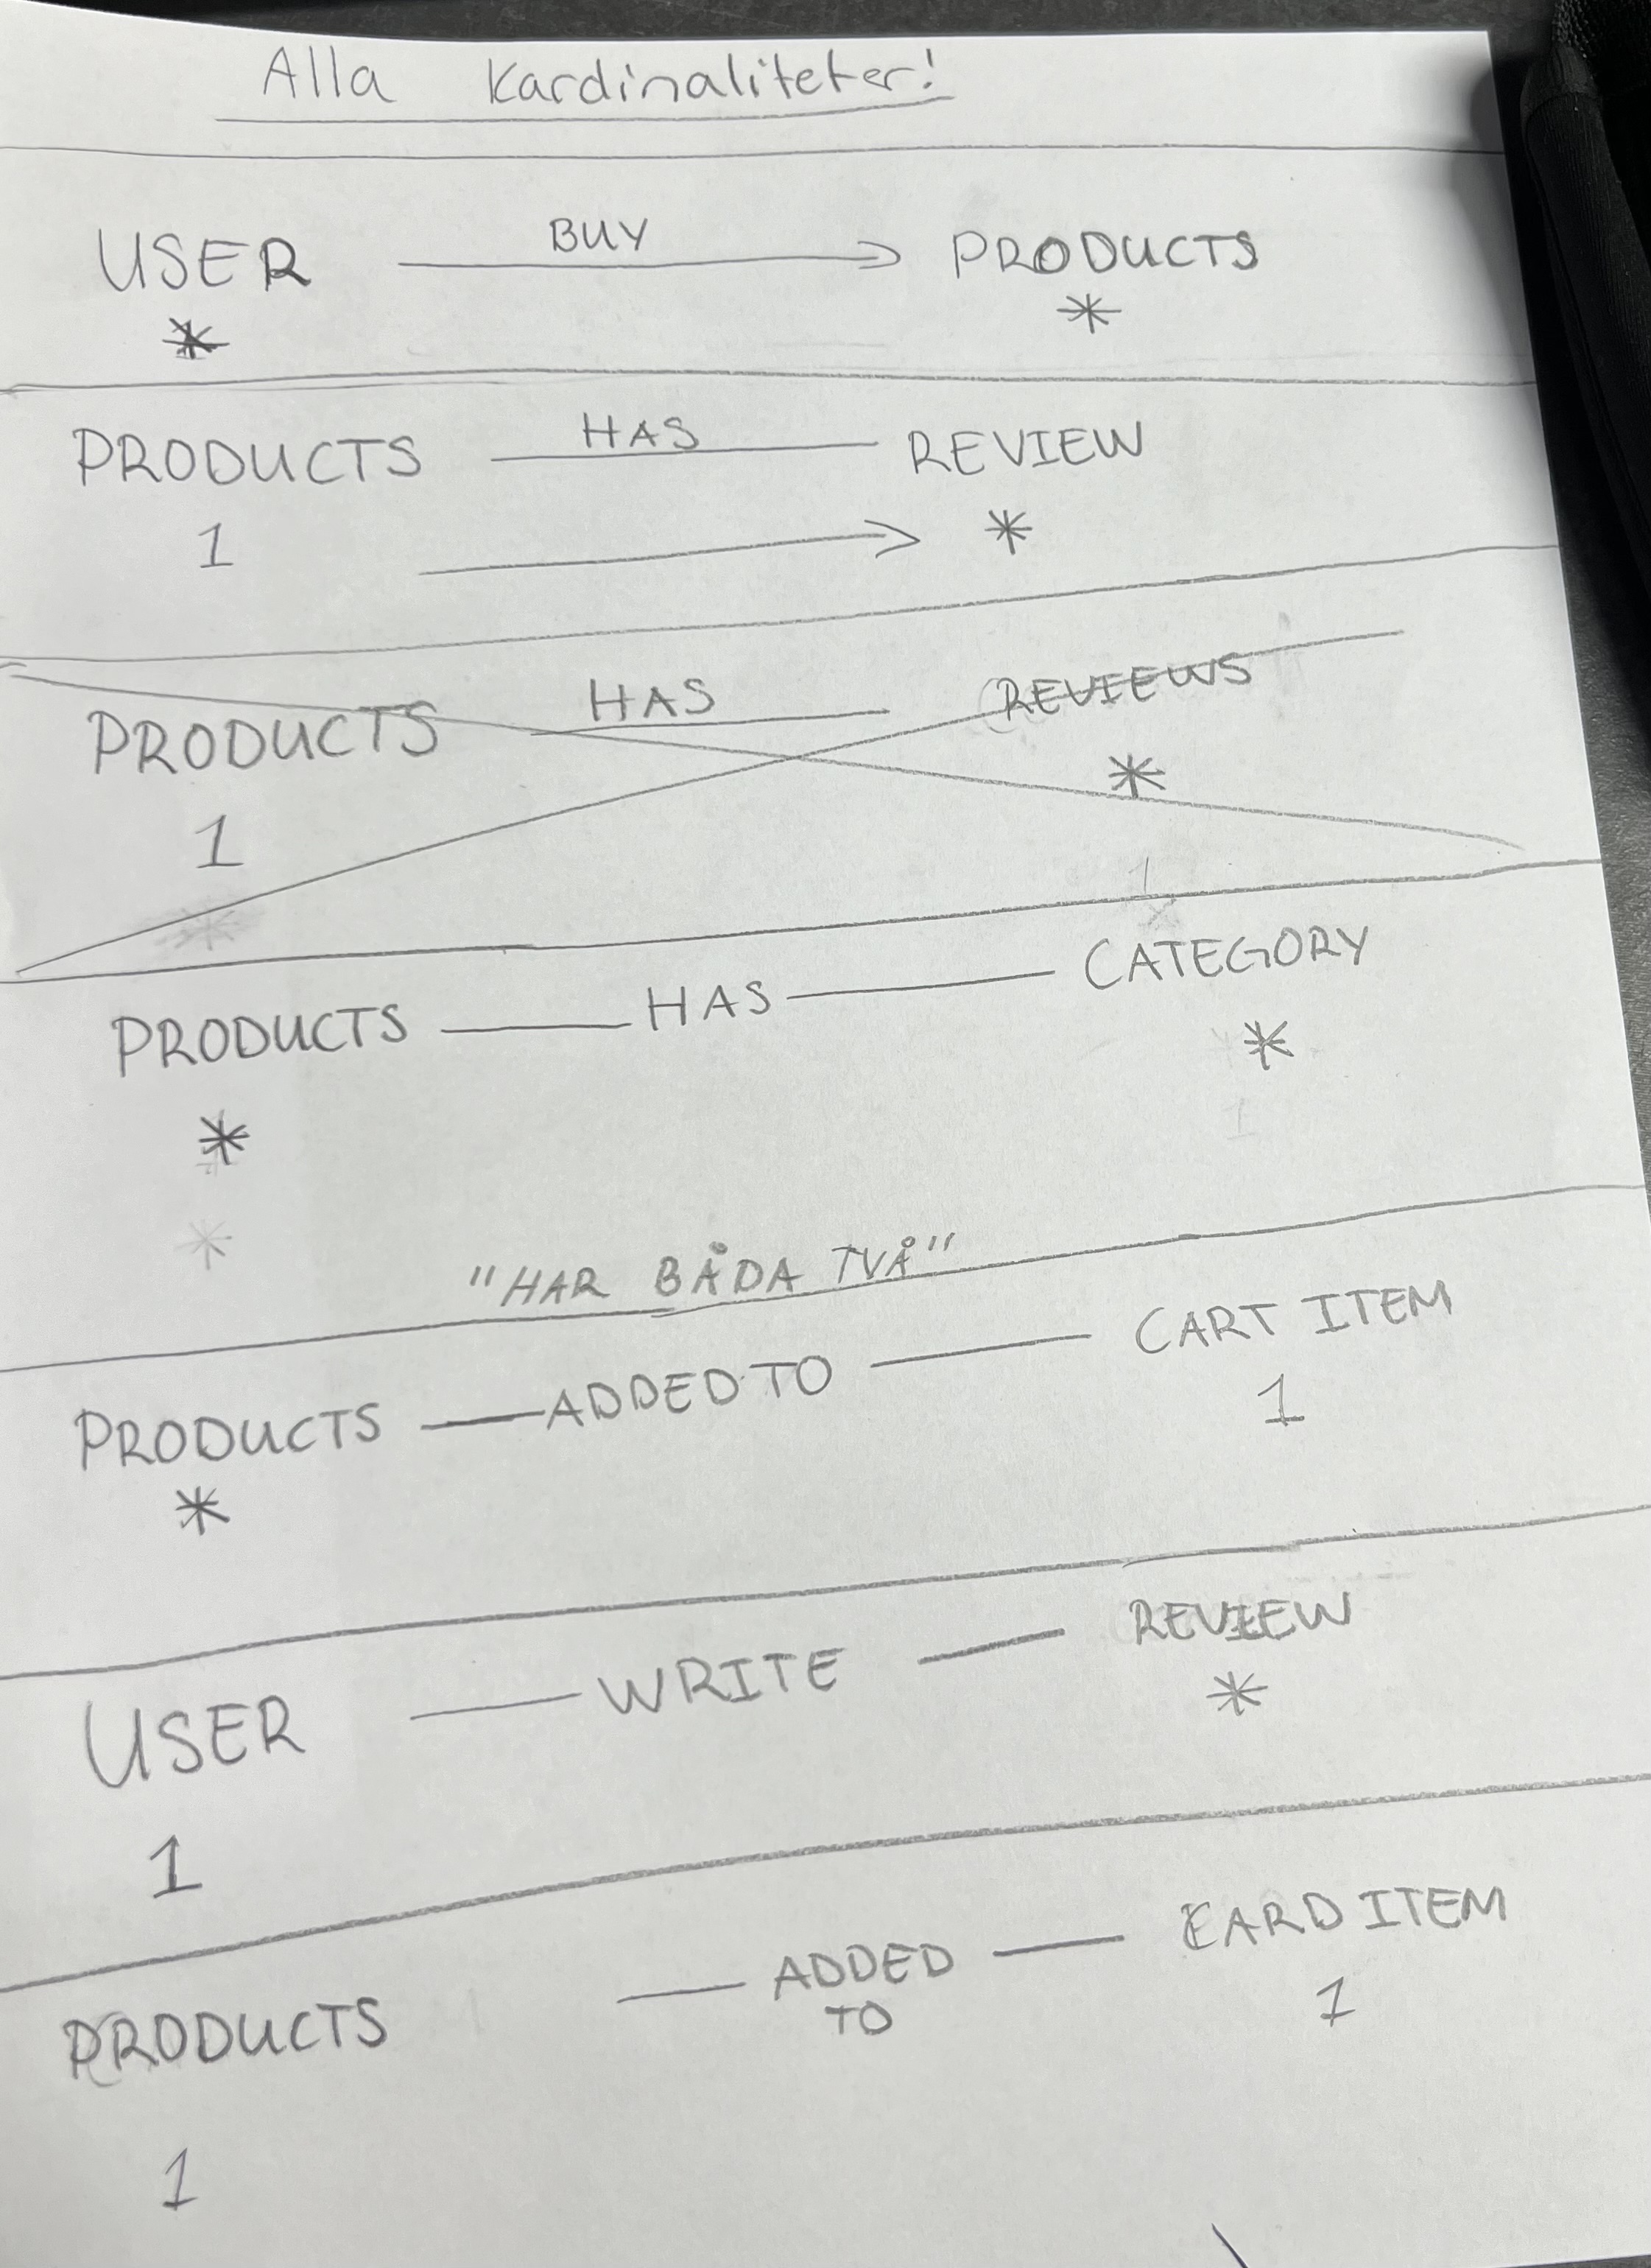 Alla Kardinaliteter!
USER BUY PRODUCTS
* *
PRODUCTS HAS REVIEW
1 *
PRODUCTS HAS REVIEWS
1 *
1
PRODUCTS HAS CATEGORY
* *
1
*
"HAR BÅDA TVÅ"
PRODUCTS ADDED TO CART ITEM
* 1
USER WRITE REVIEW
1 *
PRODUCTS ADDED TO CARD ITEM
1 1